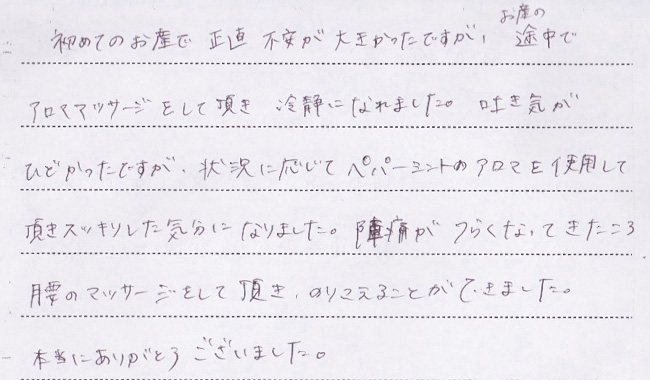 初めてのお産で 正直 不安が 大きかったですが、お産の途中で
アロママッサージをして頂き 冷静になれました。 吐き気が
ひどかったですが、状況に応じて ペパーミントのアロマを使用して
頂きスッキリした気分になりました。陣痛が つらくなってきたころ
腰のマッサージをして頂き、のりこえることができました。
本当にありがとうございました。